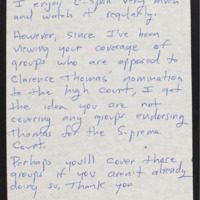 I enjoy C-Span very much
and watch it regularly.
However, since I've been
viewing your coverage of
groups who are opposed to
Clarence Thomas' nomination
to the high court, I get
the idea you are not
covering any groups endorsing
Thomas for the Supreme
Court.
Perhaps you'll cover these
groups if you aren't already
doing so, Thank you